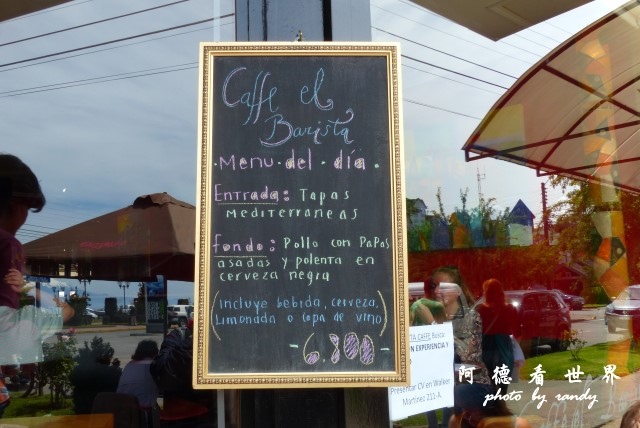 Caffe el
Barista
·Menu·del·día.
Entrada: Tapas
mediterraneas
fondo: Pollo con Papas
asadas y polenta en
cerveza negra
(incluye bebida, cerveza,
limonada o copa de vino)
-6.800-
TA CAFFE Busca
N EXPERIENCIA Y
Presentar CV en Walker
Martinez 211-A.
阿德看世界
photo by randy